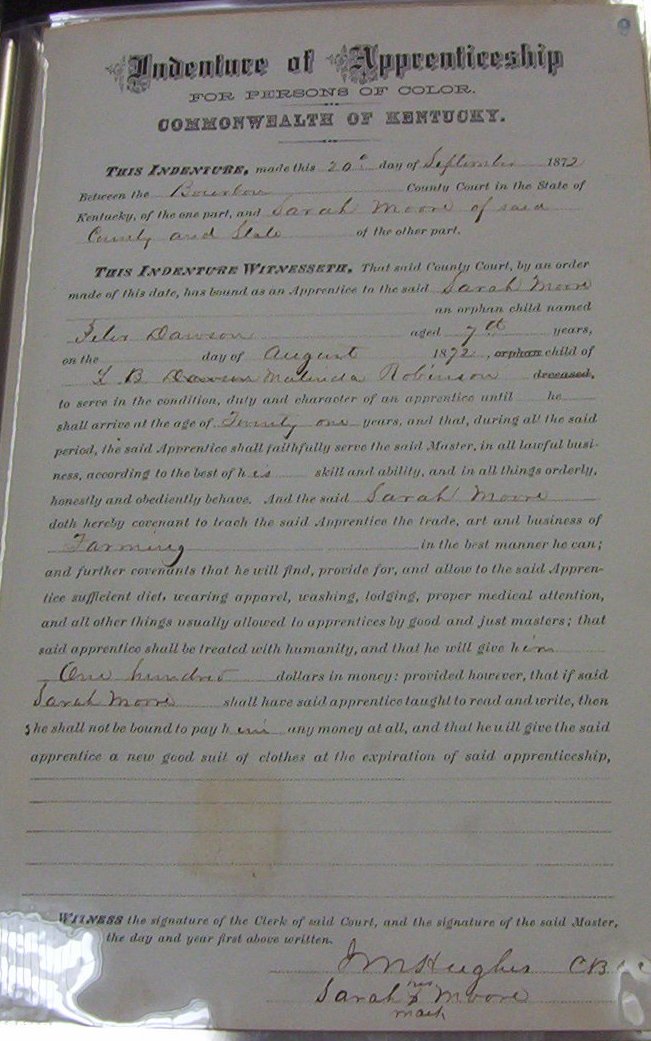 Indenture of Apprenticeship
FOR PERSONS OF COLOR.
COMMONWEALTH OF KENTUCKY.
THIS INDENTURE, made this 20th day of September 1872
Between the Bourbon County Court in the State of
Kentucky, of the one part, and Sarah Moore of said
County and State of the other part.
THIS INDENTURE WITNESSETH, That said County Court, by an order
made of this date, has bound as an Apprentice to the said Sarah Moore
an orphan child named
Peter Dawson aged 7th years,
on the day of August 1872, orphan child of
Dawson Malinda Robinson deceased,
to serve in the condition, duty and character of an apprentice until he
shall arrive at the age of Twenty one years, and that, during all the said
period, the said Apprentice shall faithfully serve the said Master, in all lawful busi-
ness, according to the best of his skill and ability, and in all things orderly,
honestly and obediently behave. And the said Sarah Moore
doth hereby covenant to teach the said Apprentice the trade, art and business of
Farming in the best manner he can;
and further covenants that he will find, provide for, and allow to the said Appren-
tice sufficient diet, wearing apparel, washing, lodging, proper medical attention,
and all other things usually allowed to apprentices by good and just masters; that
said apprentice shall be treated with humanity, and that he will give him
One hundred dollars in money: provided however, that if said
Sarah Moore shall have said apprentice taught to read and write, then
she shall not be bound to pay him any money at all, and that he will give the said
apprentice a new good suit of clothes at the expiration of said apprenticeship,
WITNESS the signature of the Clerk of said Court, and the signature of the said Master,
the day and year first above written.
JMHughes CB
Sarah her x Moore
mark